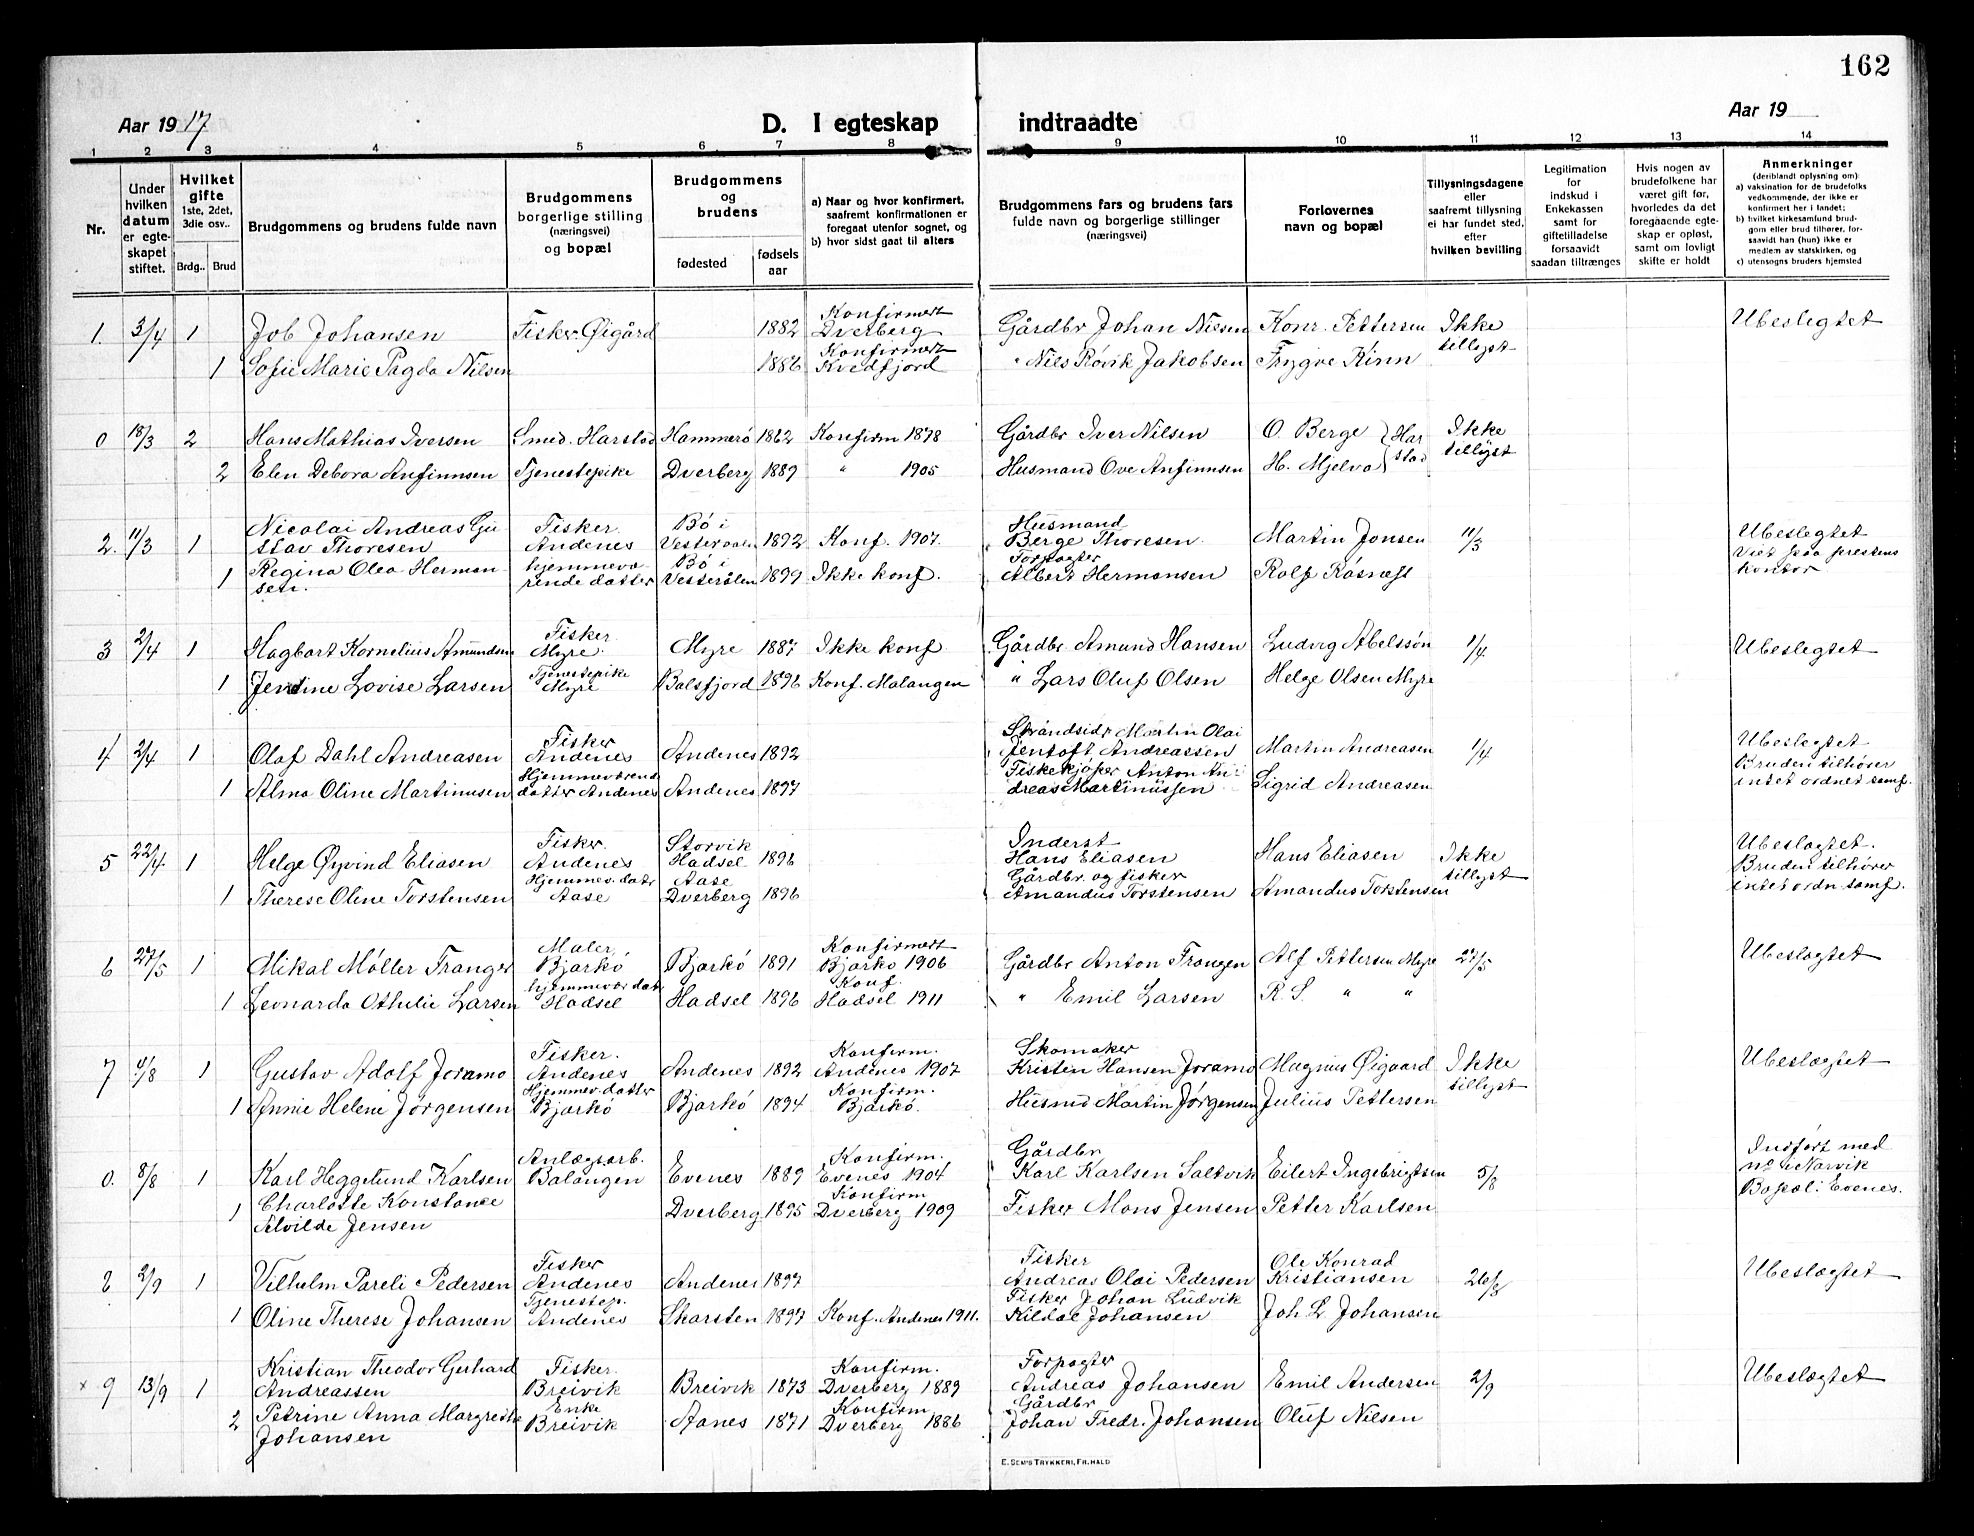 162
Aar 1917
D. I egteskap indtraadte
Aar 19
1 2 3 4 5 6 7 8 9 10 11 12 13 14
Nr.
Under hvilken datum er egteskapet stiftet.
Hvilket gifte 1ste, 2det, 3die osv..
Brdg.. Brud
Brudgommens og brudens fulde navn
Brudgommens borgerlige stilling (næringsvei) og bopæl
Brudgommens og brudens
fødested
fødsels aar
a) Naar og hvor konfirmert, saafremt konfirmationen er foregaat utenfor sognet, og
b) hvor sidst gaat til alters
Brudgommens fars og brudens fars fulde navn og borgerlige stillinger (næringsvei)
Forlovernes navn og bopæl
Tillysningsdagene eller saafremt tillysning ei har fundet sted, efter hvilken bevilling
Legitimation for indskud i Enkekassen samt for giftetilladelse forsaavidt saadan tiltrænges
Hvis nogen av brudefolkene har været gift før, hvorledes da det foregaaende egteskap er opløst, samt om lovligt skifte er holdt
Anmerkninger (deriblandt oplysning om)
a) vaksination for de brudefolks vedkommende, der ikke er konfirmert her i landet;
b) hvilket kirkesamfund brudgom eller brud tilhører, forsaavidt han (hun) ikke er medlem av statskirken, og
c) utensogns bruders hjemsted
1. 3/4 1 Job Johansen Fisker Øigård 1882 Konfirmert Dverberg Gårdbr Johan Nilsen Konr. Pettersen Ikke tillyst Ubeslegtet
1 Sofie Marie Pagda Nilsen 1886 Konfirmert Kvedfjord " Nils Røvik Jakobsen Trygve Kinn
0 18/3 2 Hans Mathias Iversen Smed. Harstad Hammerø 1862 Konfirm 1878 Gårdbr Iver Nilsen O. Berge Harstad Ikke tillyst
2 Elen Debora Anfinnsen Tjenestepike Dverberg 1889 " 1905 Husmand Ove Anfinnsen H. Mjelva
2. 11/3 1 Nicolai Andreas Gustav Thoresen Fisker Andenes Bø i Vesteraalen 1892 Konf. 1907. Husmand Berge Thoresen Martin Jonsen 11/3 Ubeslegtet Viet paa prestens kontor
1 Regina Olea Hermansen. hjemmeværende datter Bø i Vesterålen 1899 Ikke konf. Forpagter Albert Hermansen Rolf Røsnest
3 2/4 1 Hagbart Kornelius Amundsen Fisker Myre. Myre 1887 Ikke konf Gårdbr Amund Hansen Ludvig Abelssøn 1/4 Ubeslegtet
1 Jendine Lovise Larsen Tjenestepike Myre Balsfjord 1896 Konf. Malangen " Lars Oluf Olsen Helge Olsen Myre
4 2/4 1 Olaf Dahl Andreasen Fisker Andenes Andenes 1892 Strandsidr Martin Olai Jentoft Andreassen Martin Andreasen 1/4 Ubeslegtet Bruden tilhører intet ordnet samf.
1 Alma Oline Martinusen Hjemmeværend datter Andenes Andenes 1897 Fiskekjøper Anton Andreas Martinussen Sigrid Andreasen
5 22/4 1 Helge Øyvind Eliasen Fisker Andenes Storvik Hadsel 1896 Inderst Hans Eliasen Hans Eliasen Ikke tillyst Ubeslegtet. Bruden tilhører intet ordn samf.
1 Therese Oline Torstensen Hjemmev. datr Aase Aase Dverberg 1896 Gårdbr og fisker Amandus Torstensen Amandus Torstensen
6 27/5 1 Mikal Møller Tranger Maler Bjarkø Bjarkø 1891 Konfirmert Bjarkø 1906 Gårdbr Anton Frangen Alf Pettersen Myre 27/5 Ubeslægtet
1 Leonarda Othilie Larsen hjemmevær dat Hadsel Hadsel 1896 Konf. Hadsel 1911 " Emil Larsen R. S. " "
7 11/8 1 Gustav Adolf Joramo Fisker. Andenes Andenes 1892 Konfirm. Andenes 1907 Skomaker Kristen Hansen Joramo Magnus Øigaard Ikke tillyst Ubeslægtet
1 Annie Helene Jørgensen Hjemmev. datter Bjarkø Bjarkø 1894 Konfirm. Bjarkø. Husmd Martin Jørgensen Julius Pettersen
0. 8/8 1 Karl Heggelund Karlsen Anlægsarb. Balangen Evenes 1889 Konfirm. Evenes 1904 Gårdbr Karl Karlsen Saltvik Eilert Ingebrigtsen 5/8 Indført med no i Narvik Bopæl i Evenes.
1 Charlotte Konstance Alvilde Jensen Dverberg 1895 Konfirm Dverberg 1909 Fisker Mons Jensen Petter Karlsen
8 2/9 1 Vilhelm Pareli Pedersen Fisker Andenes Andenes 1897 Fisker Andreas Olai Pedersen Ole Konrad Kristiansen 26/8 Ubeslægtet
1 Oline Therese Johansen Tjenestep. Andenes Skarsten 1897 Konf. Andenes 1911. Fisker Johan Ludvik Kildal Johansen Joh L Johansen
x 9 13/9 1 Kristian Theodor Gerhard Andreassen Fisker. Breivik Breivik 1873 Konfirm. Dverberg 1889 Forpagter Andreas Johansen Emil Andersen 2/9 Ubeslægtet
2 Petrine Anna Margrethe Johansen Enke Breivik Aanes 1871 Konfirm Dverberg 1886 Gårdbr Johan Fredr. Johansen Oluf Nilsen
E. SEM'S TRYKKERI, FR.HALD